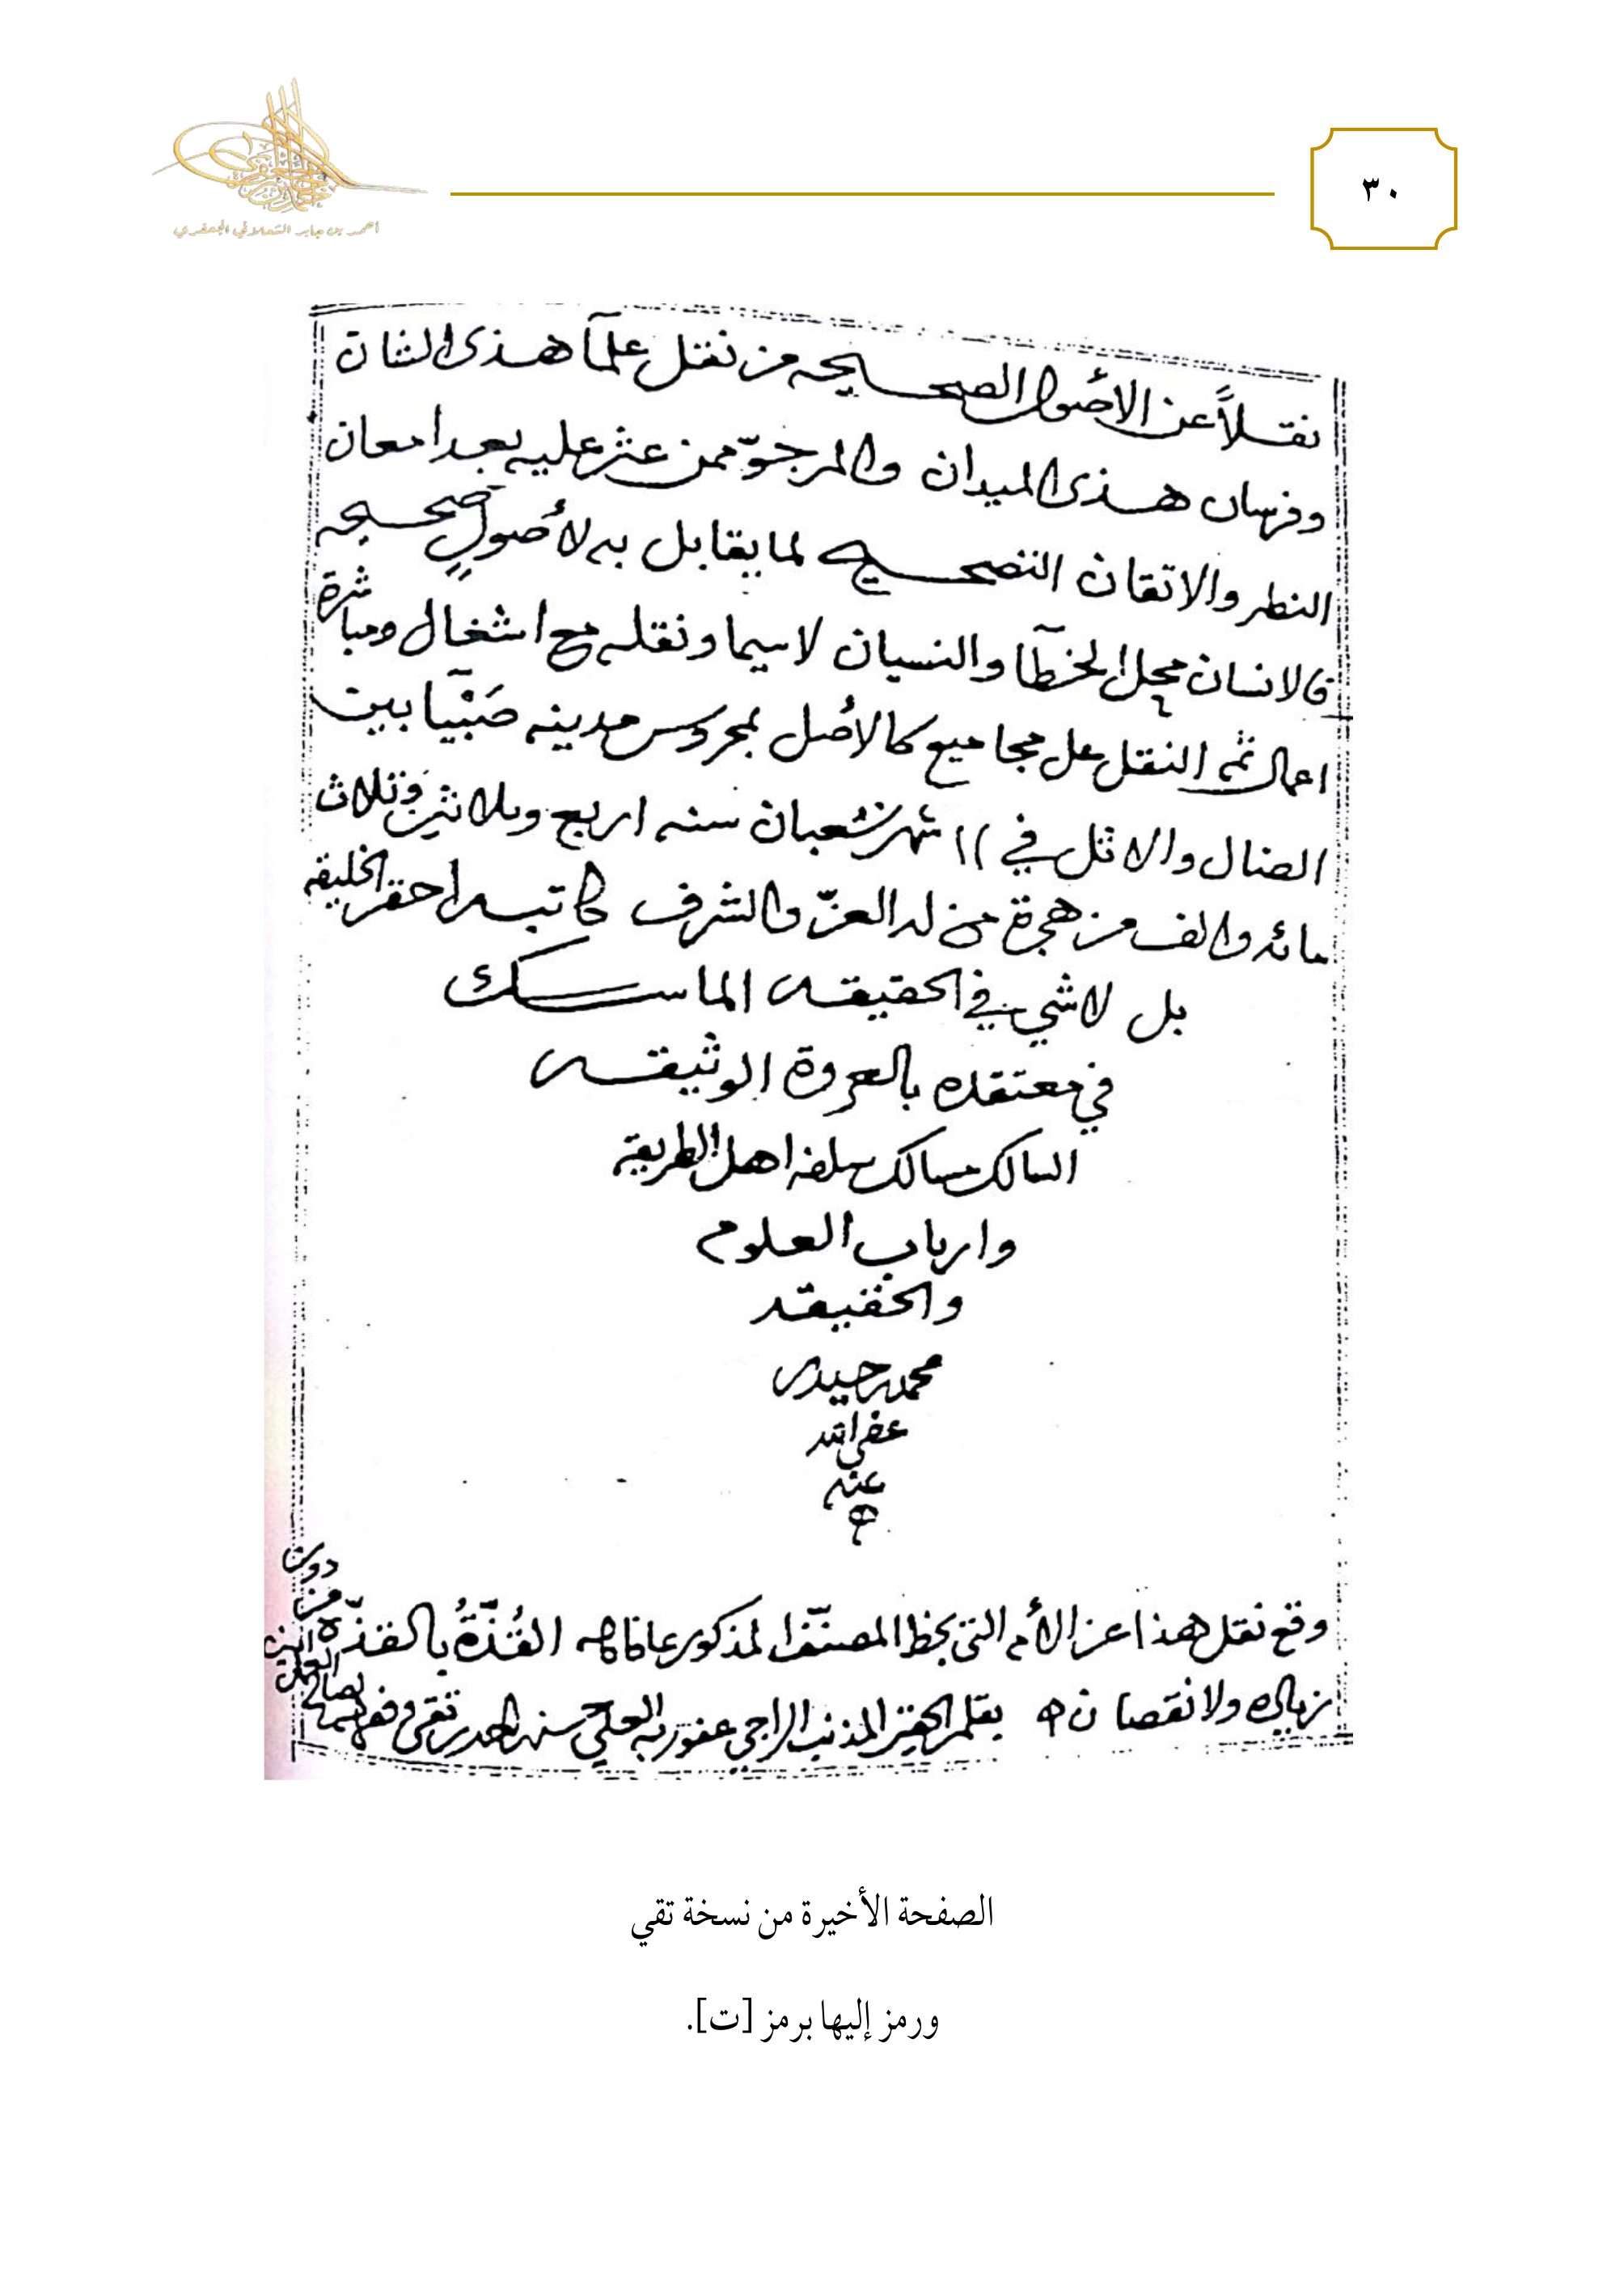 ٣٠
احمد بن جابر الشملاني الجعفري
نقلاً عن الأصول الصحيحه من نقل علمآ هذى الشان
وفرسان هذى الميدان والمرجوّ ممن عثر عليه بعد امعان
النظر والاتقان التصحيح لما يقابل به لأصولٍ صحيحه
فالانسان محل الخطآ والنسيان لاسيما ونقله مع اشغال ومباشرة
اعمال تم النقل على مجاميع كالأصل بمحروس مدينه صَبْيَا بين
الضال والاثل في ١١ شهر شعبان سنه اربع وثلاثين وثلاث
مائه والف من هجرة من له العزّ والشرف كاتبه احقر الخليقه
بل لا شي في الحقيقه الماسك
في معتقده بالعروة الوثيقه
السالك مسالك سلفه اهل الطريقه
وارباب العلوم
والحقيقه
محمد حيدر
عفى الله
عنه
وقع نقل هذا عن الأم التى بخط المصنّف المذكور عافاه القُذَّةُ بالقذّة من دون
زياده ولا نقصان بقلم الحقير المذنب الراجي عفو ربه العلي حسن احمد تقى وفقهم
الصفحة الأخيرة من نسخة تقي
ورمز إليها برمز [ت].